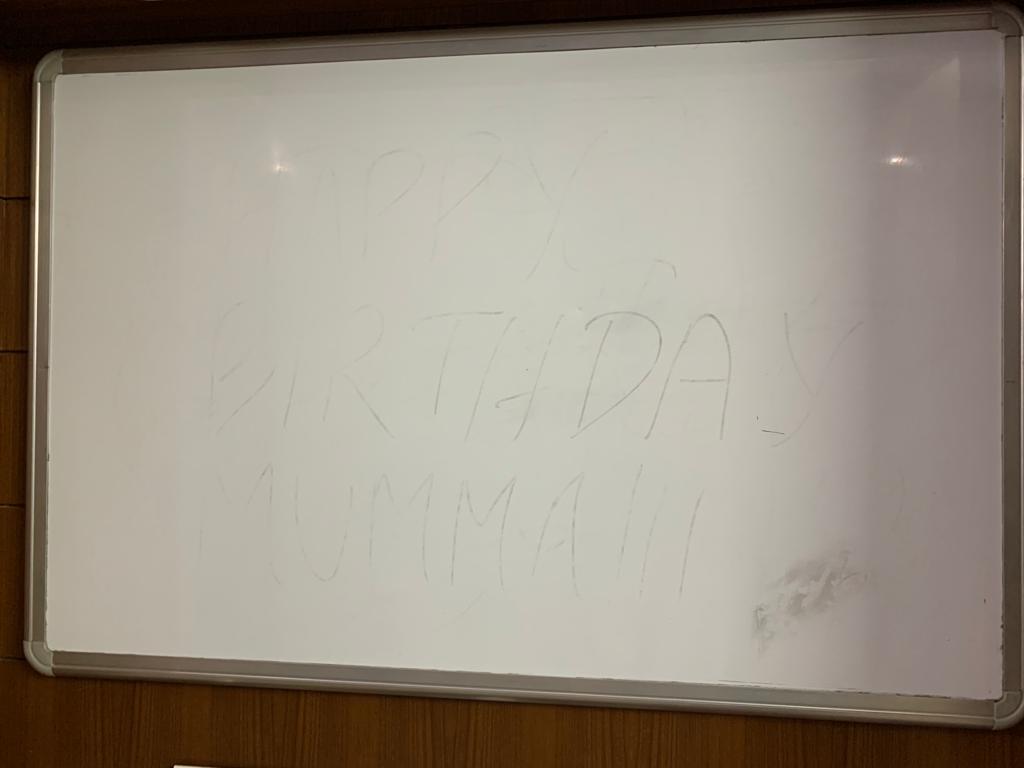 HAPPY
BIRTHDAY
MUMMA!!!